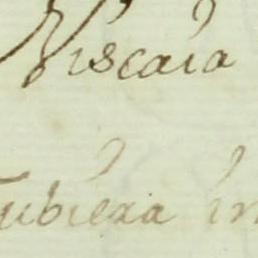 Viscaia
ubiera in